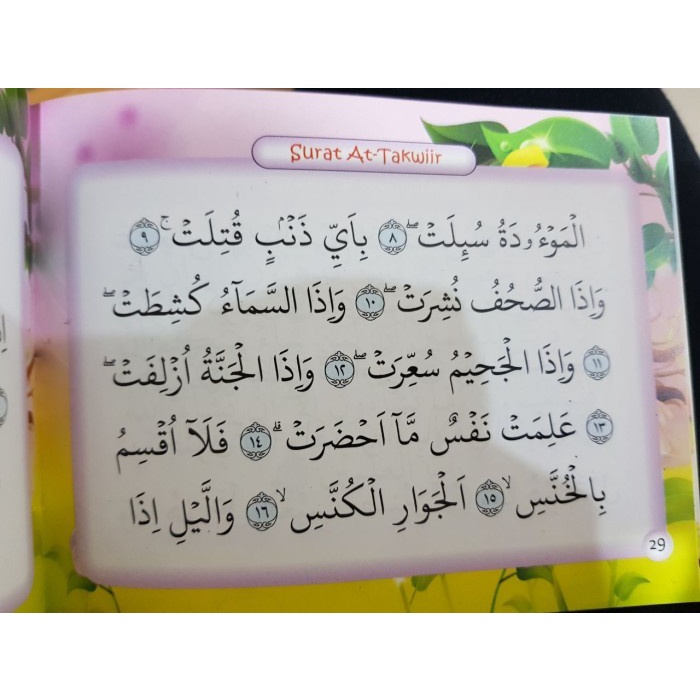 Surat At-Takwiir
الْمَوْءُوْدَةُ سُىِٕلَتْۖ ٨ بِاَيِّ ذَنْۢبٍ قُتِلَتْۚ ٩
وَاِذَا الصُّحُفُ نُشِرَتْۖ ١٠ وَاِذَا السَّمَاۤءُ كُشِطَتْۖ
١١ وَاِذَا الْجَحِيْمُ سُعِّرَتْۖ ١٢ وَاِذَا الْجَنَّةُ اُزْلِفَتْۖ
١٣ عَلِمَتْ نَفْسٌ مَّآ اَحْضَرَتْۗ ١٤ فَلَآ اُقْسِمُ
بِالْخُنَّسِۙ ١٥ الْجَوَارِ الْكُنَّسِۙ ١٦ وَالَّيْلِ اِذَا
29